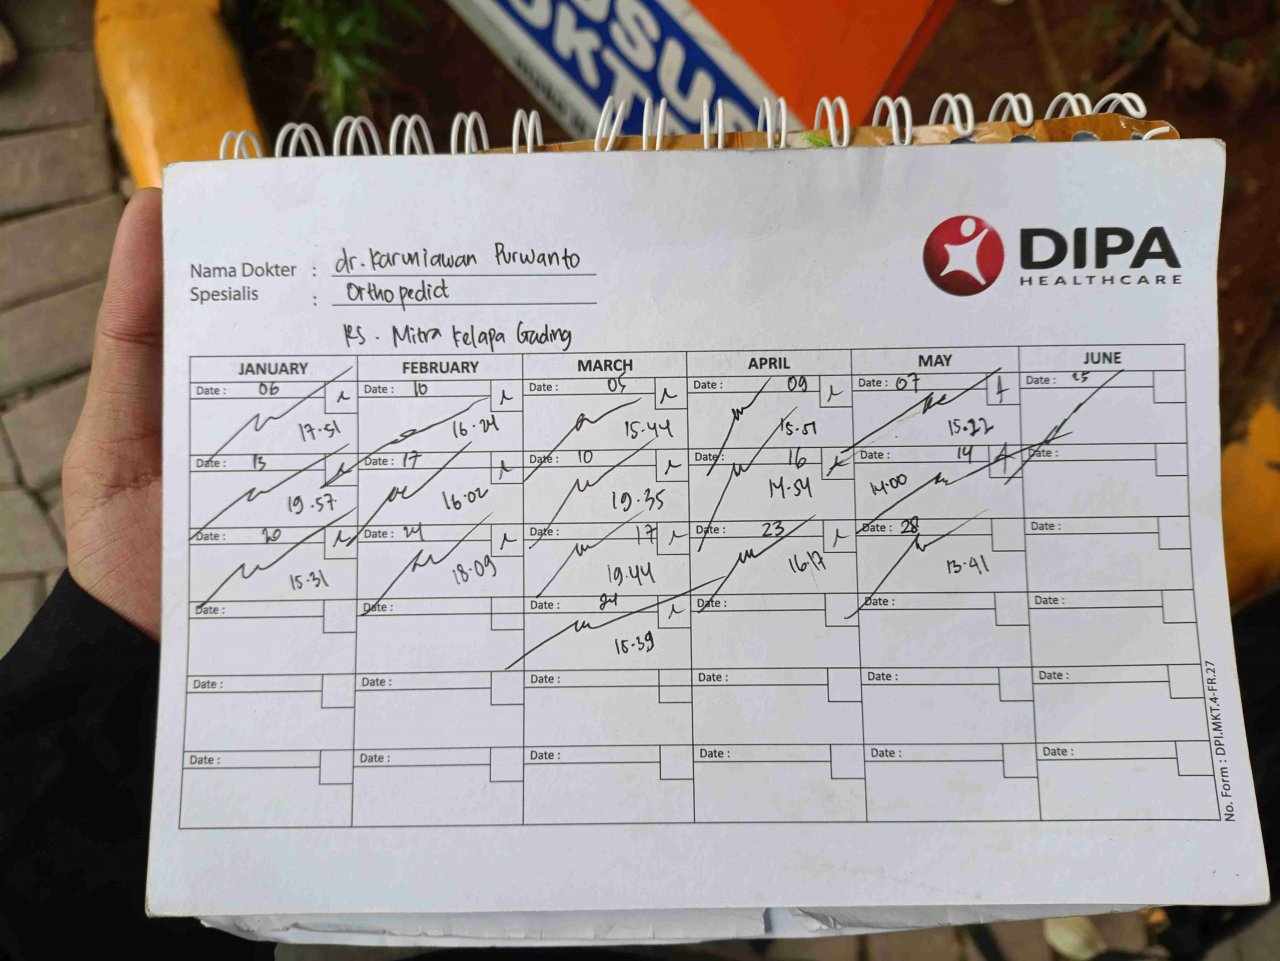 DIPA
HEALTHCARE
Nama Dokter : dr. Karuniawan Purwanto
Spesialis : Orthopedict
RS. Mitra Kelapa Gading
JANUARY FEBRUARY MARCH APRIL MAY JUNE
Date : 06 Date : 10 Date : 05 Date : 09 Date : 07 Date : 25
17.51 16.24 15.44 15.51 15.22
Date : 13 Date : 17 Date : 10 Date : 16 Date : 14 Date :
19.57 16.02 19.35 14.54 14.00
Date : 20 Date : 24 Date : 17 Date : 23 Date : 28 Date :
15.31 18.09 19.44 16.17 13.41
Date : Date : Date : 24 Date : Date : Date :
15.39
Date : Date : Date : Date : Date : Date :
Date : Date : Date : Date : Date : Date :
No. Form : DPI.MKT.4-FR.27